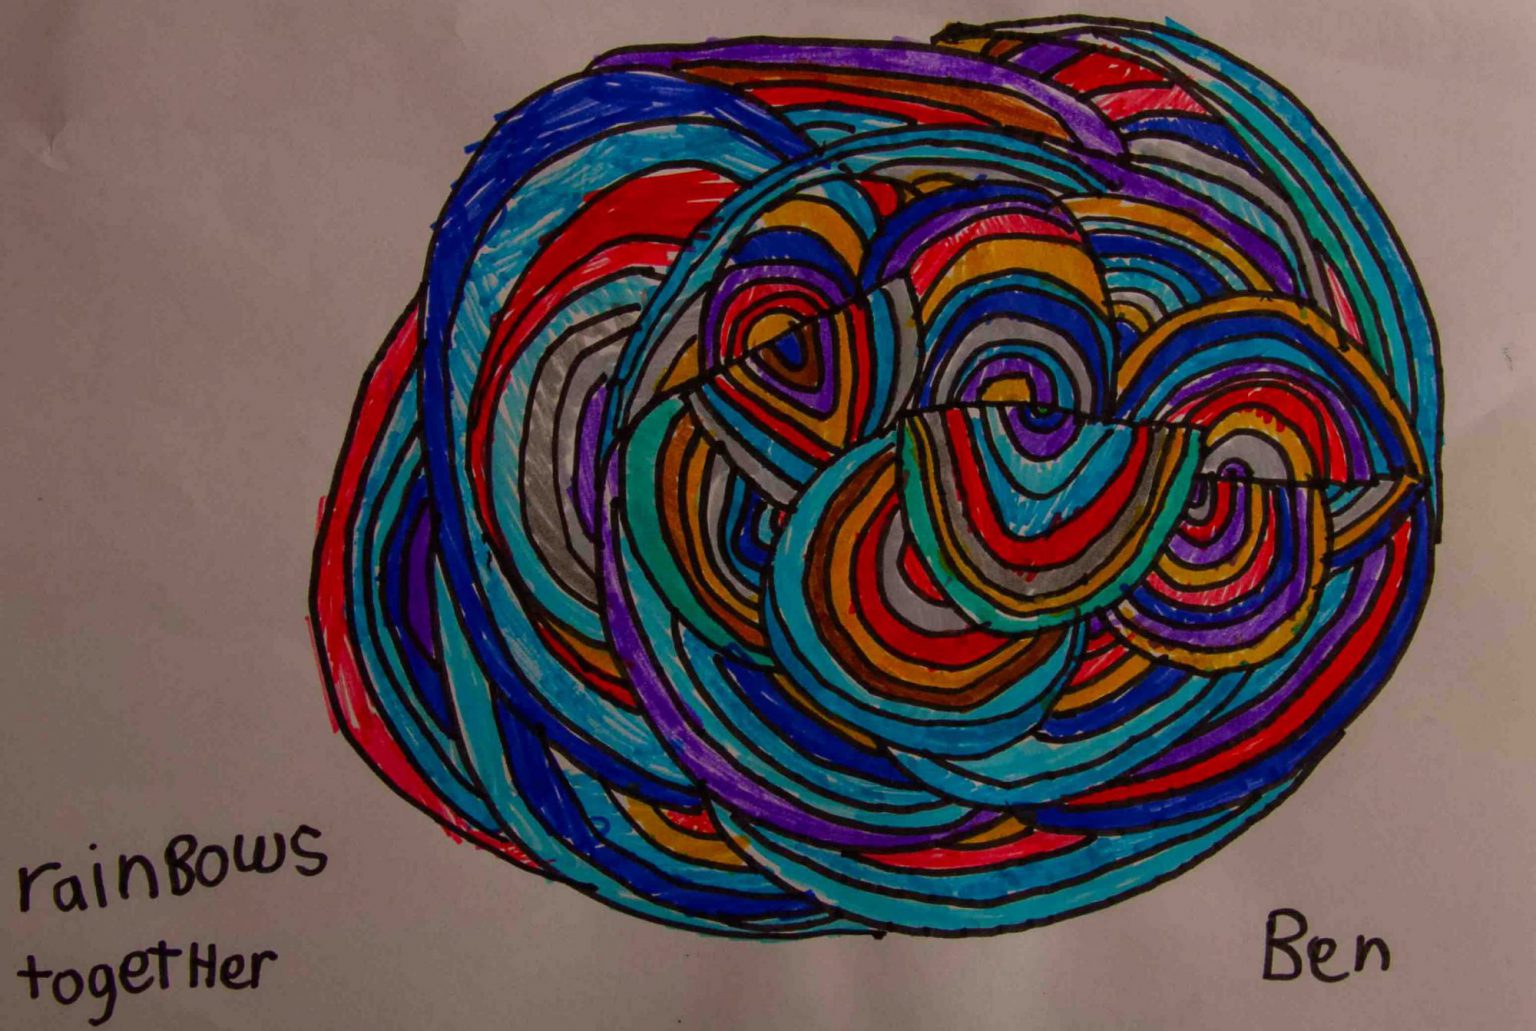 rainBows
togetHer
Ben